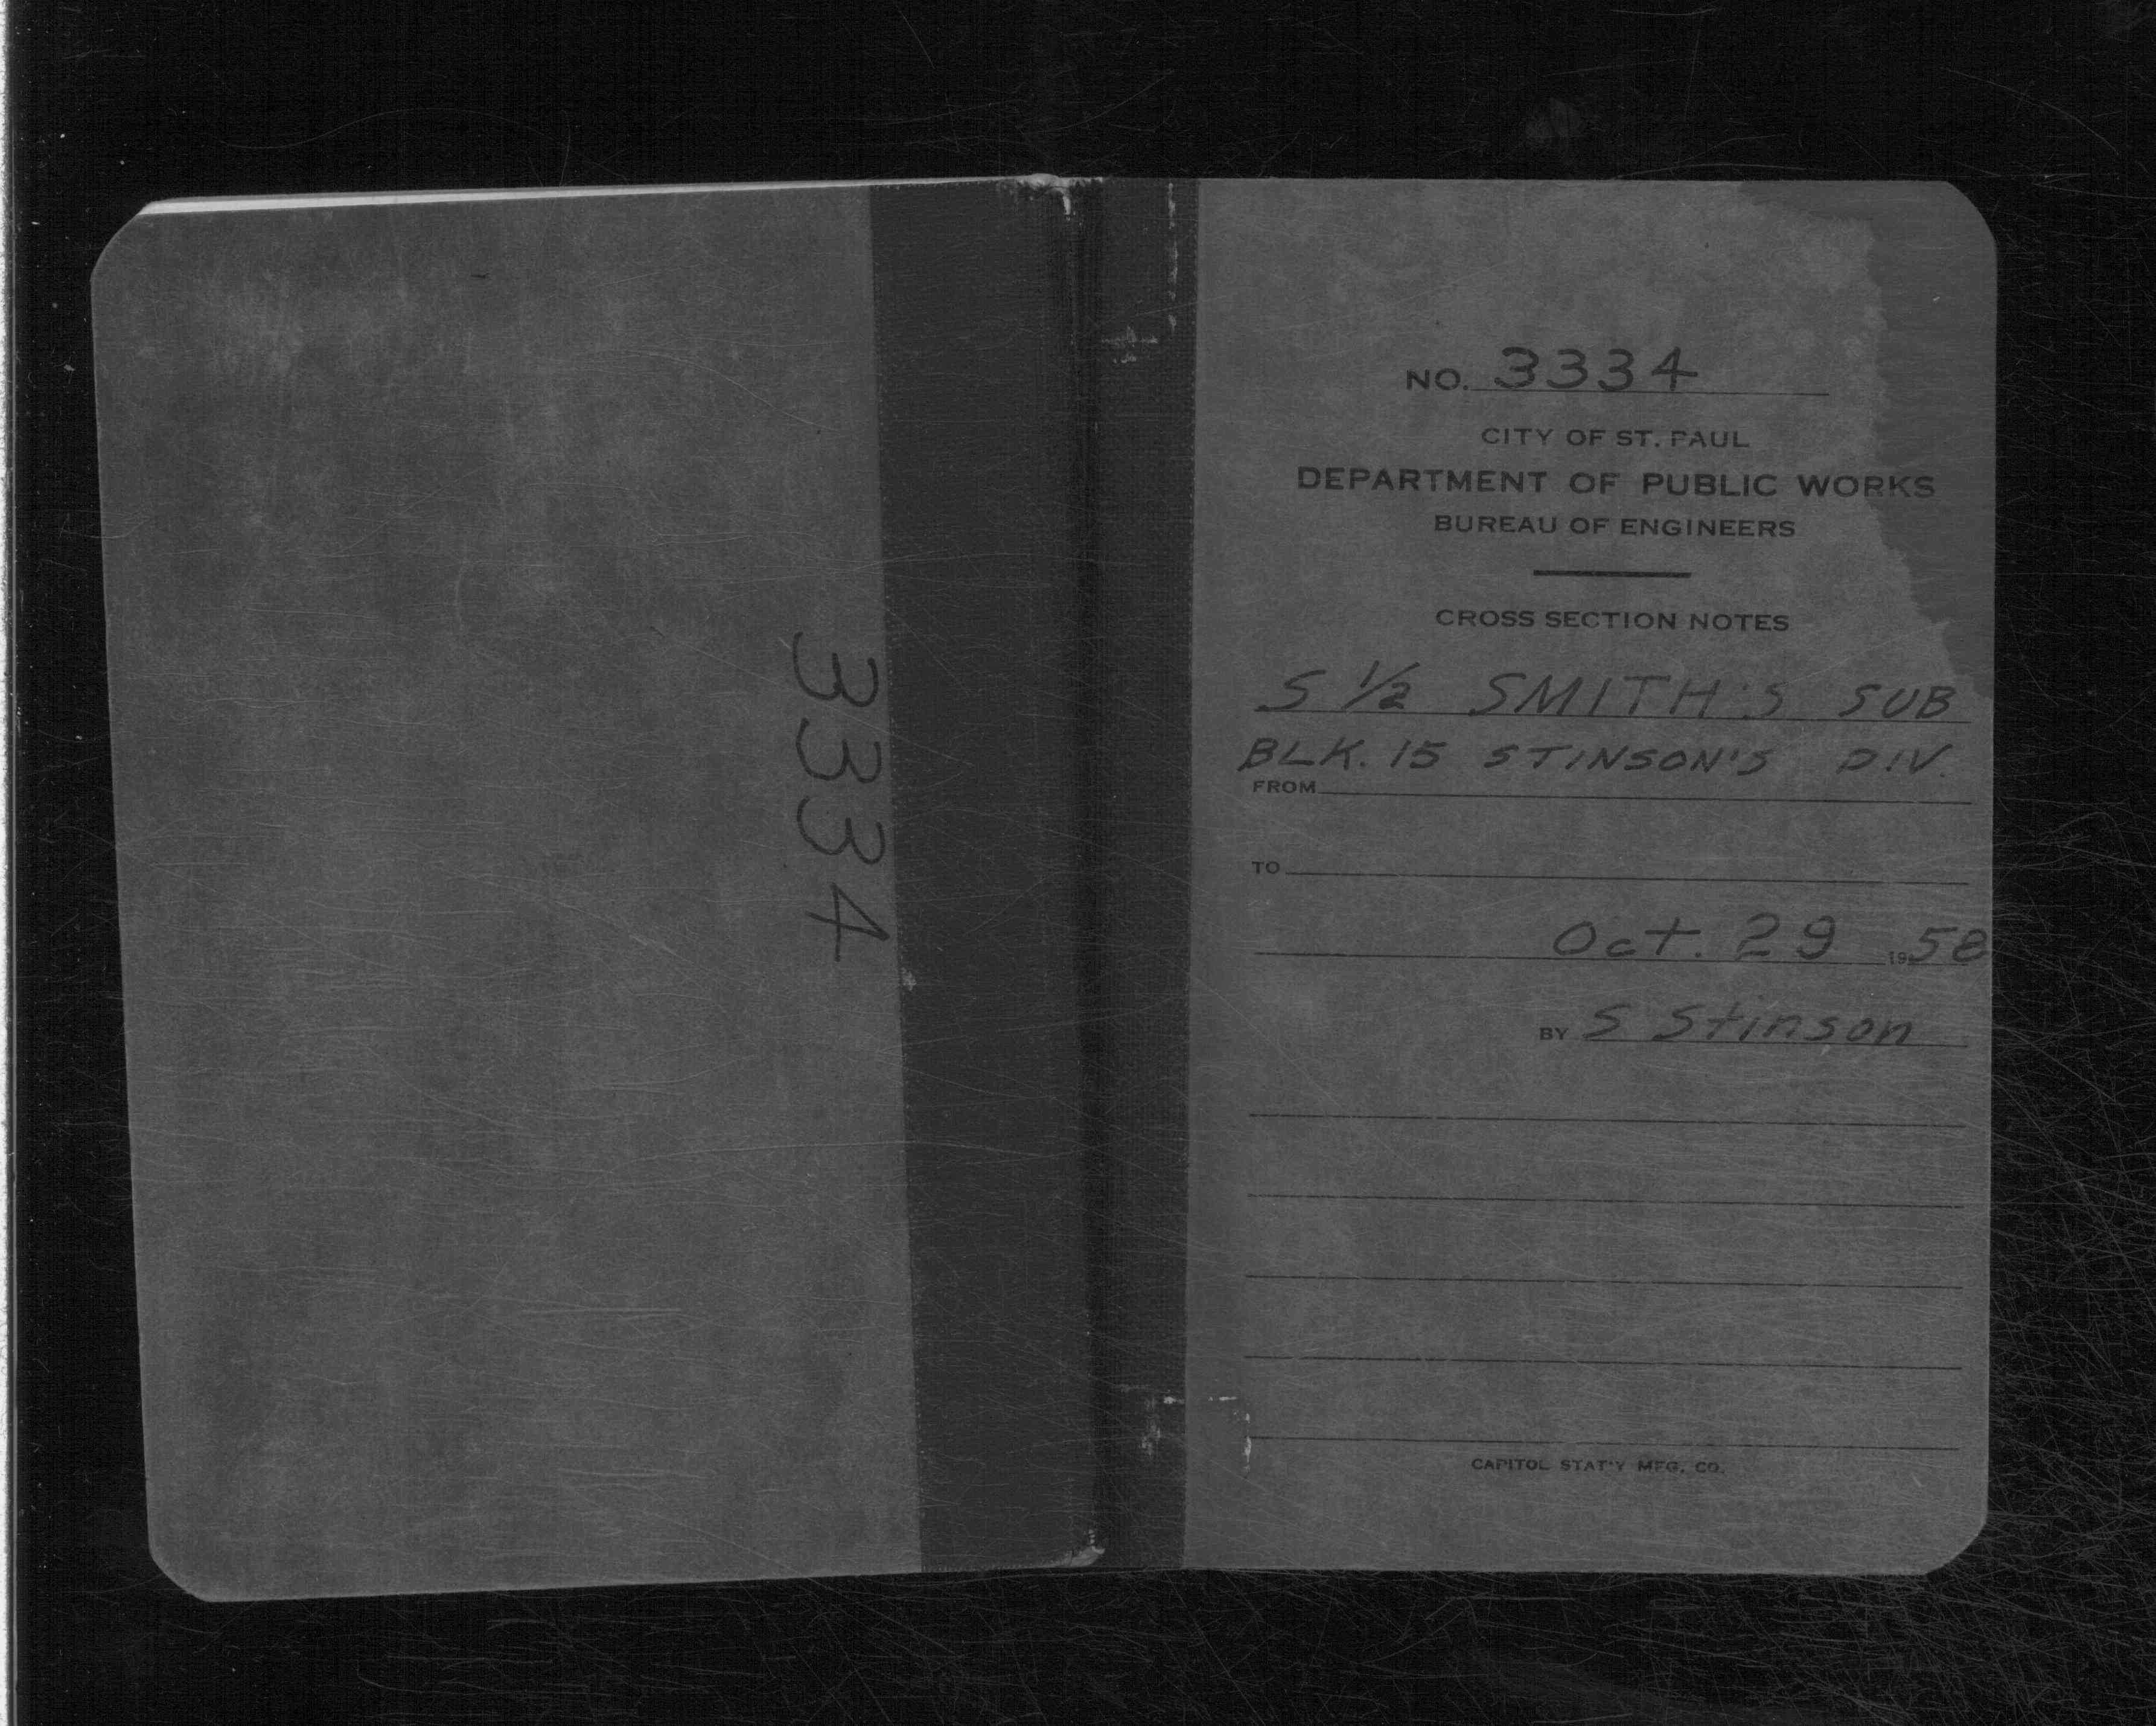 3334
NO. 3334
CITY OF ST. PAUL
DEPARTMENT OF PUBLIC WORKS
BUREAU OF ENGINEERS
CROSS SECTION NOTES
S 1/2 SMITH'S SUB
BLK. 15 STINSON'S DIV.
FROM
TO
Oct. 29 1958
BY S Stinson
CAPITOL STAT'Y MFG. CO.